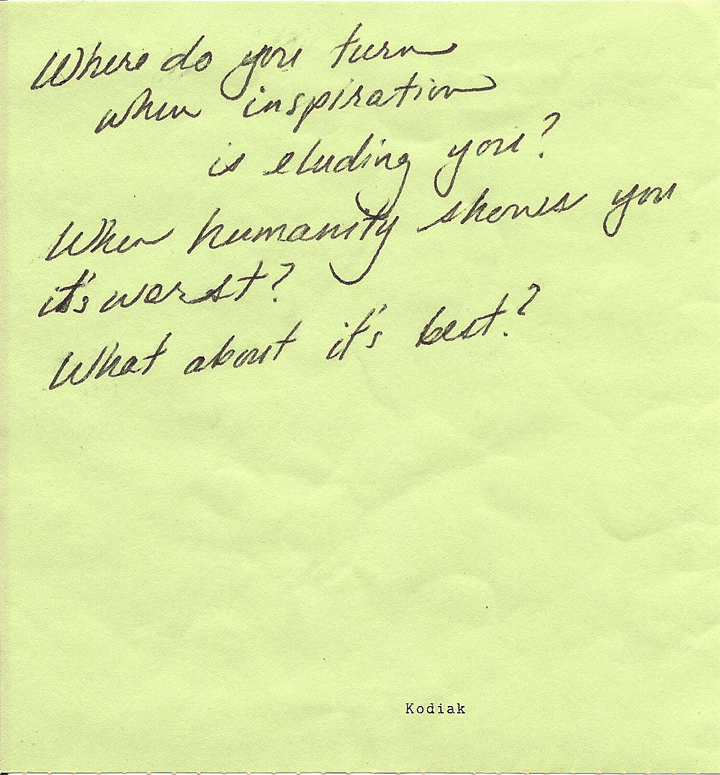 Where do you turn
when inspiration
is eluding you?
When humanity shows you
it's worst?
What about it's best?
Kodiak